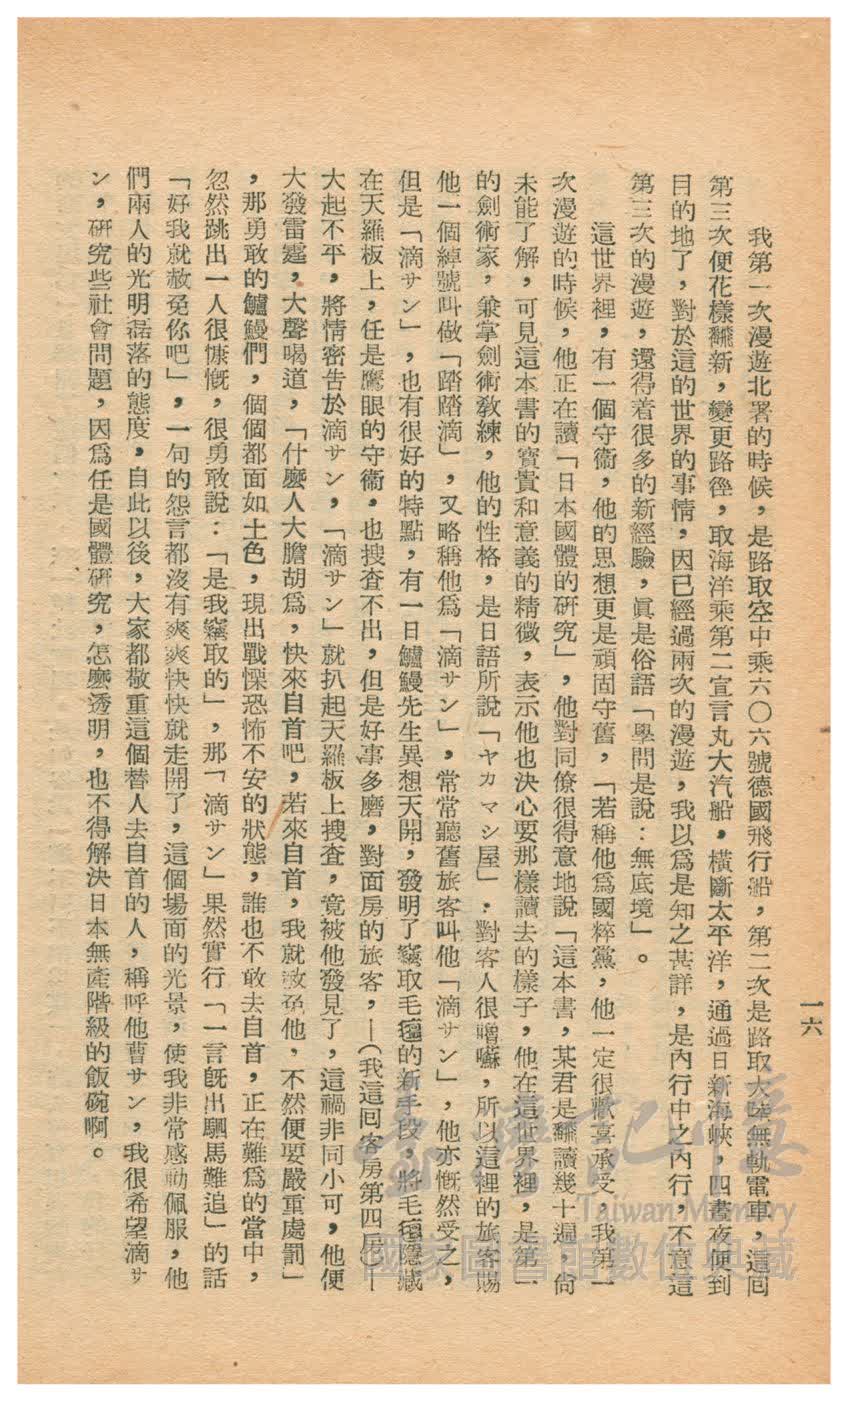 一六
我第一次漫遊北署的時候，是路取空中乘六〇六號德國飛行船，第二次是路取大陸無軌電車，這囘
第三次便花樣翻新，變更路徑，取海洋乘第二宣言丸大汽船，橫斷太平洋，通過日新海峽，四晝夜便到
目的地了，對於這的世界的事情，因已經過兩次的漫遊，我以爲是知之甚詳，是內行中之內行，不意這
第三次的漫遊，還得着很多的新經驗，眞是俗語「學問是說：無底境」。
這世界裡，有一個守衞，他的思想更是頑固守舊，「若稱他爲國粹黨，他一定很歡喜承受，我第一
次漫遊的時候，他正在讀「日本國體的硏究」，他對同僚很得意地說「這本書，某君是翻讀幾十遍，尙
未能了解，可見這本書的寶貴和意義的精微，表示他也決心要那樣讀去的樣子，他在這世界裡，是第一
的劍術家，兼掌劍術敎練，他的性格，是日語所說「ヤカマシ屋」．對客人很嚕囌，所以這裡的旅客賜
他一個綽號叫做「踏踏滴」，又略稱他爲「滴サン」，常常聽舊旅客叫他「滴サン」，他亦慨然受之，
但是「滴サン」，也有很好的特點，有一日鱸鰻先生異想天開，發明了竊取毛氈的新手段，將毛氈隱藏
在天羅板上，任是鷹眼的守衞，也搜查不出，但是好事多磨，對面房的旅客，—（我這囘客房第四房）—
大起不平，將情密告於滴サン，「滴サン」就扒起天羅板上搜査，竟被他發見了，這禍非同小可，他便
大發雷霆，大聲喝道，「什麼人大膽胡爲，快來自首吧，若來自首，我就赦免他，不然便要嚴重處罰」
，那勇敢的鱸鰻們，個個都面如土色，現出戰慄恐怖不安的狀態，誰也不敢去自首，正在難爲的當中，
忽然跳出一人很慷慨，很勇敢說：「是我竊取的」，那「滴サン」果然實行「一言旣出駟馬難追」的話
「好我就赦免你吧」，一句的怨言都沒有爽爽快快就走開了，這個場面的光景，使我非常感動佩服，他
們兩人的光明磊落的態度，自此以後，大家都敬重這個替人去自首的人，稱呼他曹サン，我很希望滴サ
ン，硏究些社會問題，因爲任是國體硏究，怎麽透明，也不得解決日本無產階級的飯碗啊。
臺灣記憶
Taiwan Memory
國家圖書館數位典藏